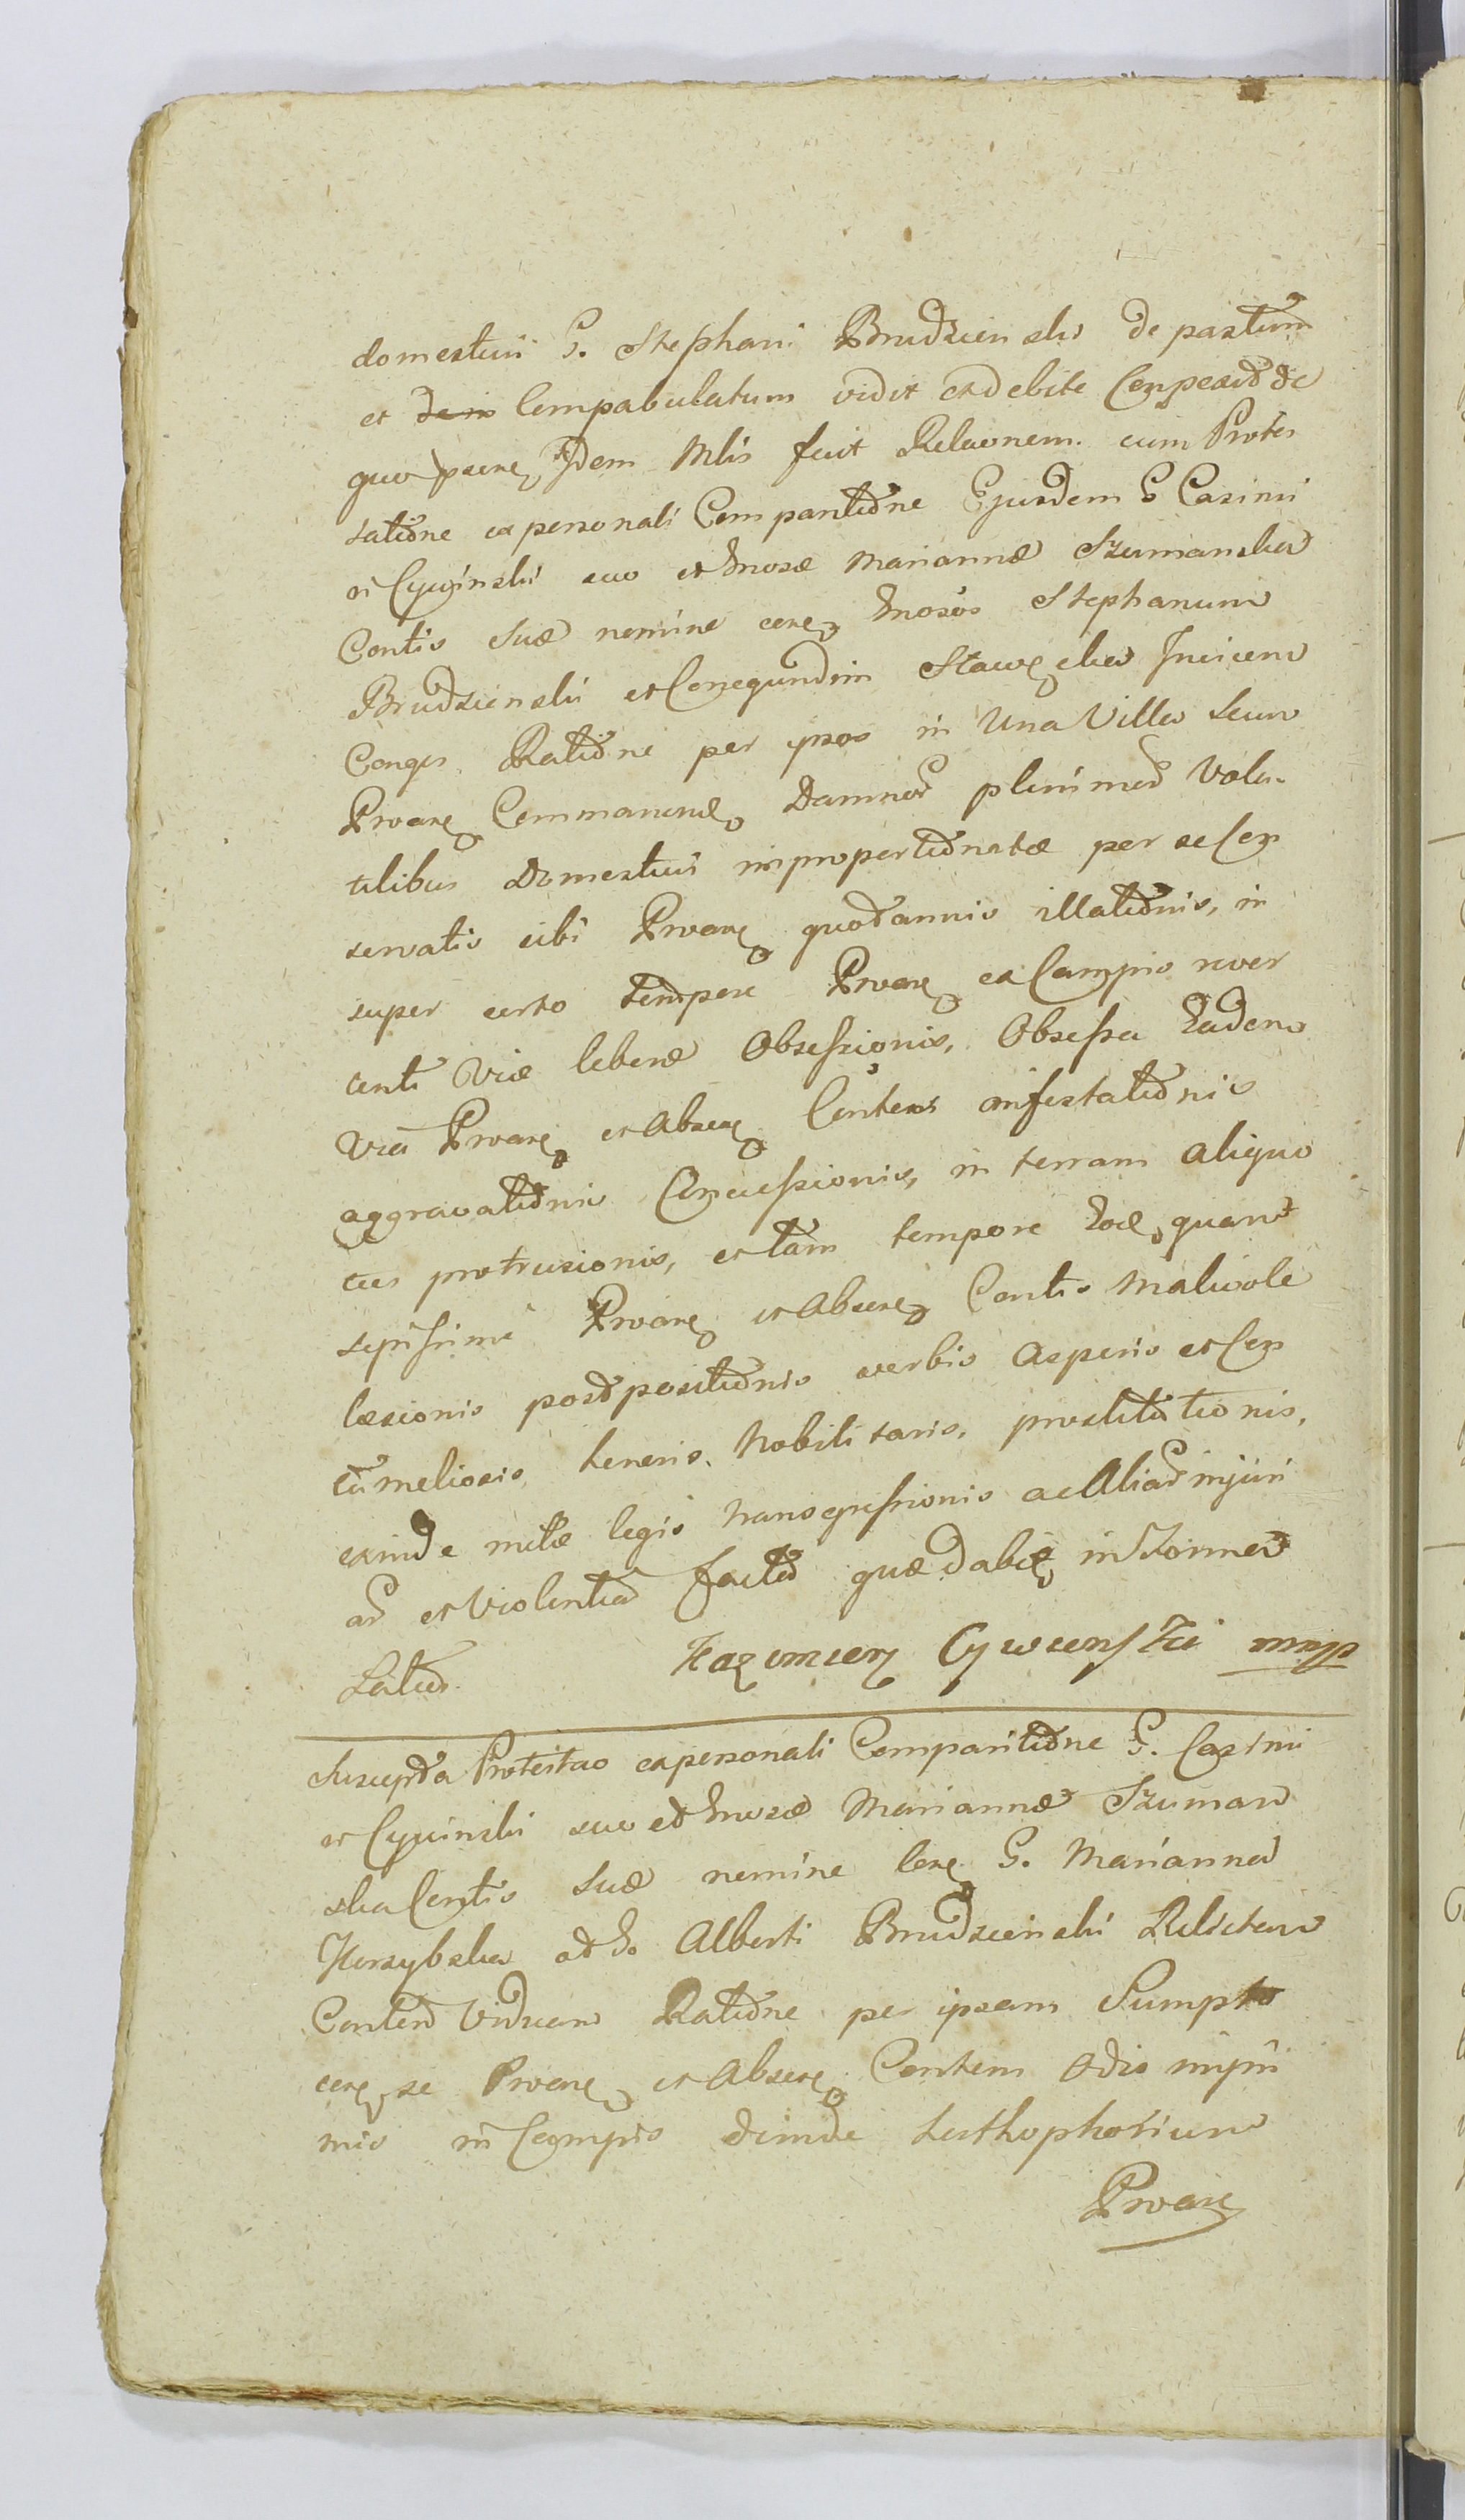 domesticū G. Stephani Brudzienski depastum
et Compabulatum vidit et debite Conspexit de
quo pnre Idem Mlis fecit Relaonem cum Protes
tatione ex personali Comparitione Ejusdem G Casimi
ri Cywinski suo et Gnosæ Mariannæ Szumanska
Contis Suæ nomine ctra Gnosos Stephanum
Brudzienski et Conegundim Staw ska Invicem
Conges Ratione per ipsos in Una Villa Secum
Prnare Commanend Damnor plurimor Vola-
tilibus Domesticis improportionatæ per se Con
servatis sibi Prnare quotannis illationis, in
super certo tempore Prnare ex Campis rever
centi viæ liberæ Obsessionis, Obsessa Eadem
via Prnare et Absere Contem infestationis
aggravationis Concussionis, in terram aliquo
ties protrusionis, et tam tempore Eod, quam
sepissime Prnare et Absere Contis Malivole
læsionis postpositionis verbis asperis et Con
tumeliosis, honoris, Nobilitaris, prostitutionis,
exinde mitæ legis transgressionis ac Aliar injuri
ar et Violentiar factar quæ dabit in Termino
Latius. Kazimierz Cywienski mmp
Suscepta Protestao ex personali Comparitione G. Casimi
ri Cywinski suo et Gnosæ Mariannæ Szuman
ska Contis Suæ nomine Ctra G. Marianna
Korzybska olim G. Alberti Brudzienski Relictam
Contem Viduam Ratione per ipsam Sumpto
ctra se Prnare et Absere Contem Odio inpri
mis in Campis deinde
Prnare